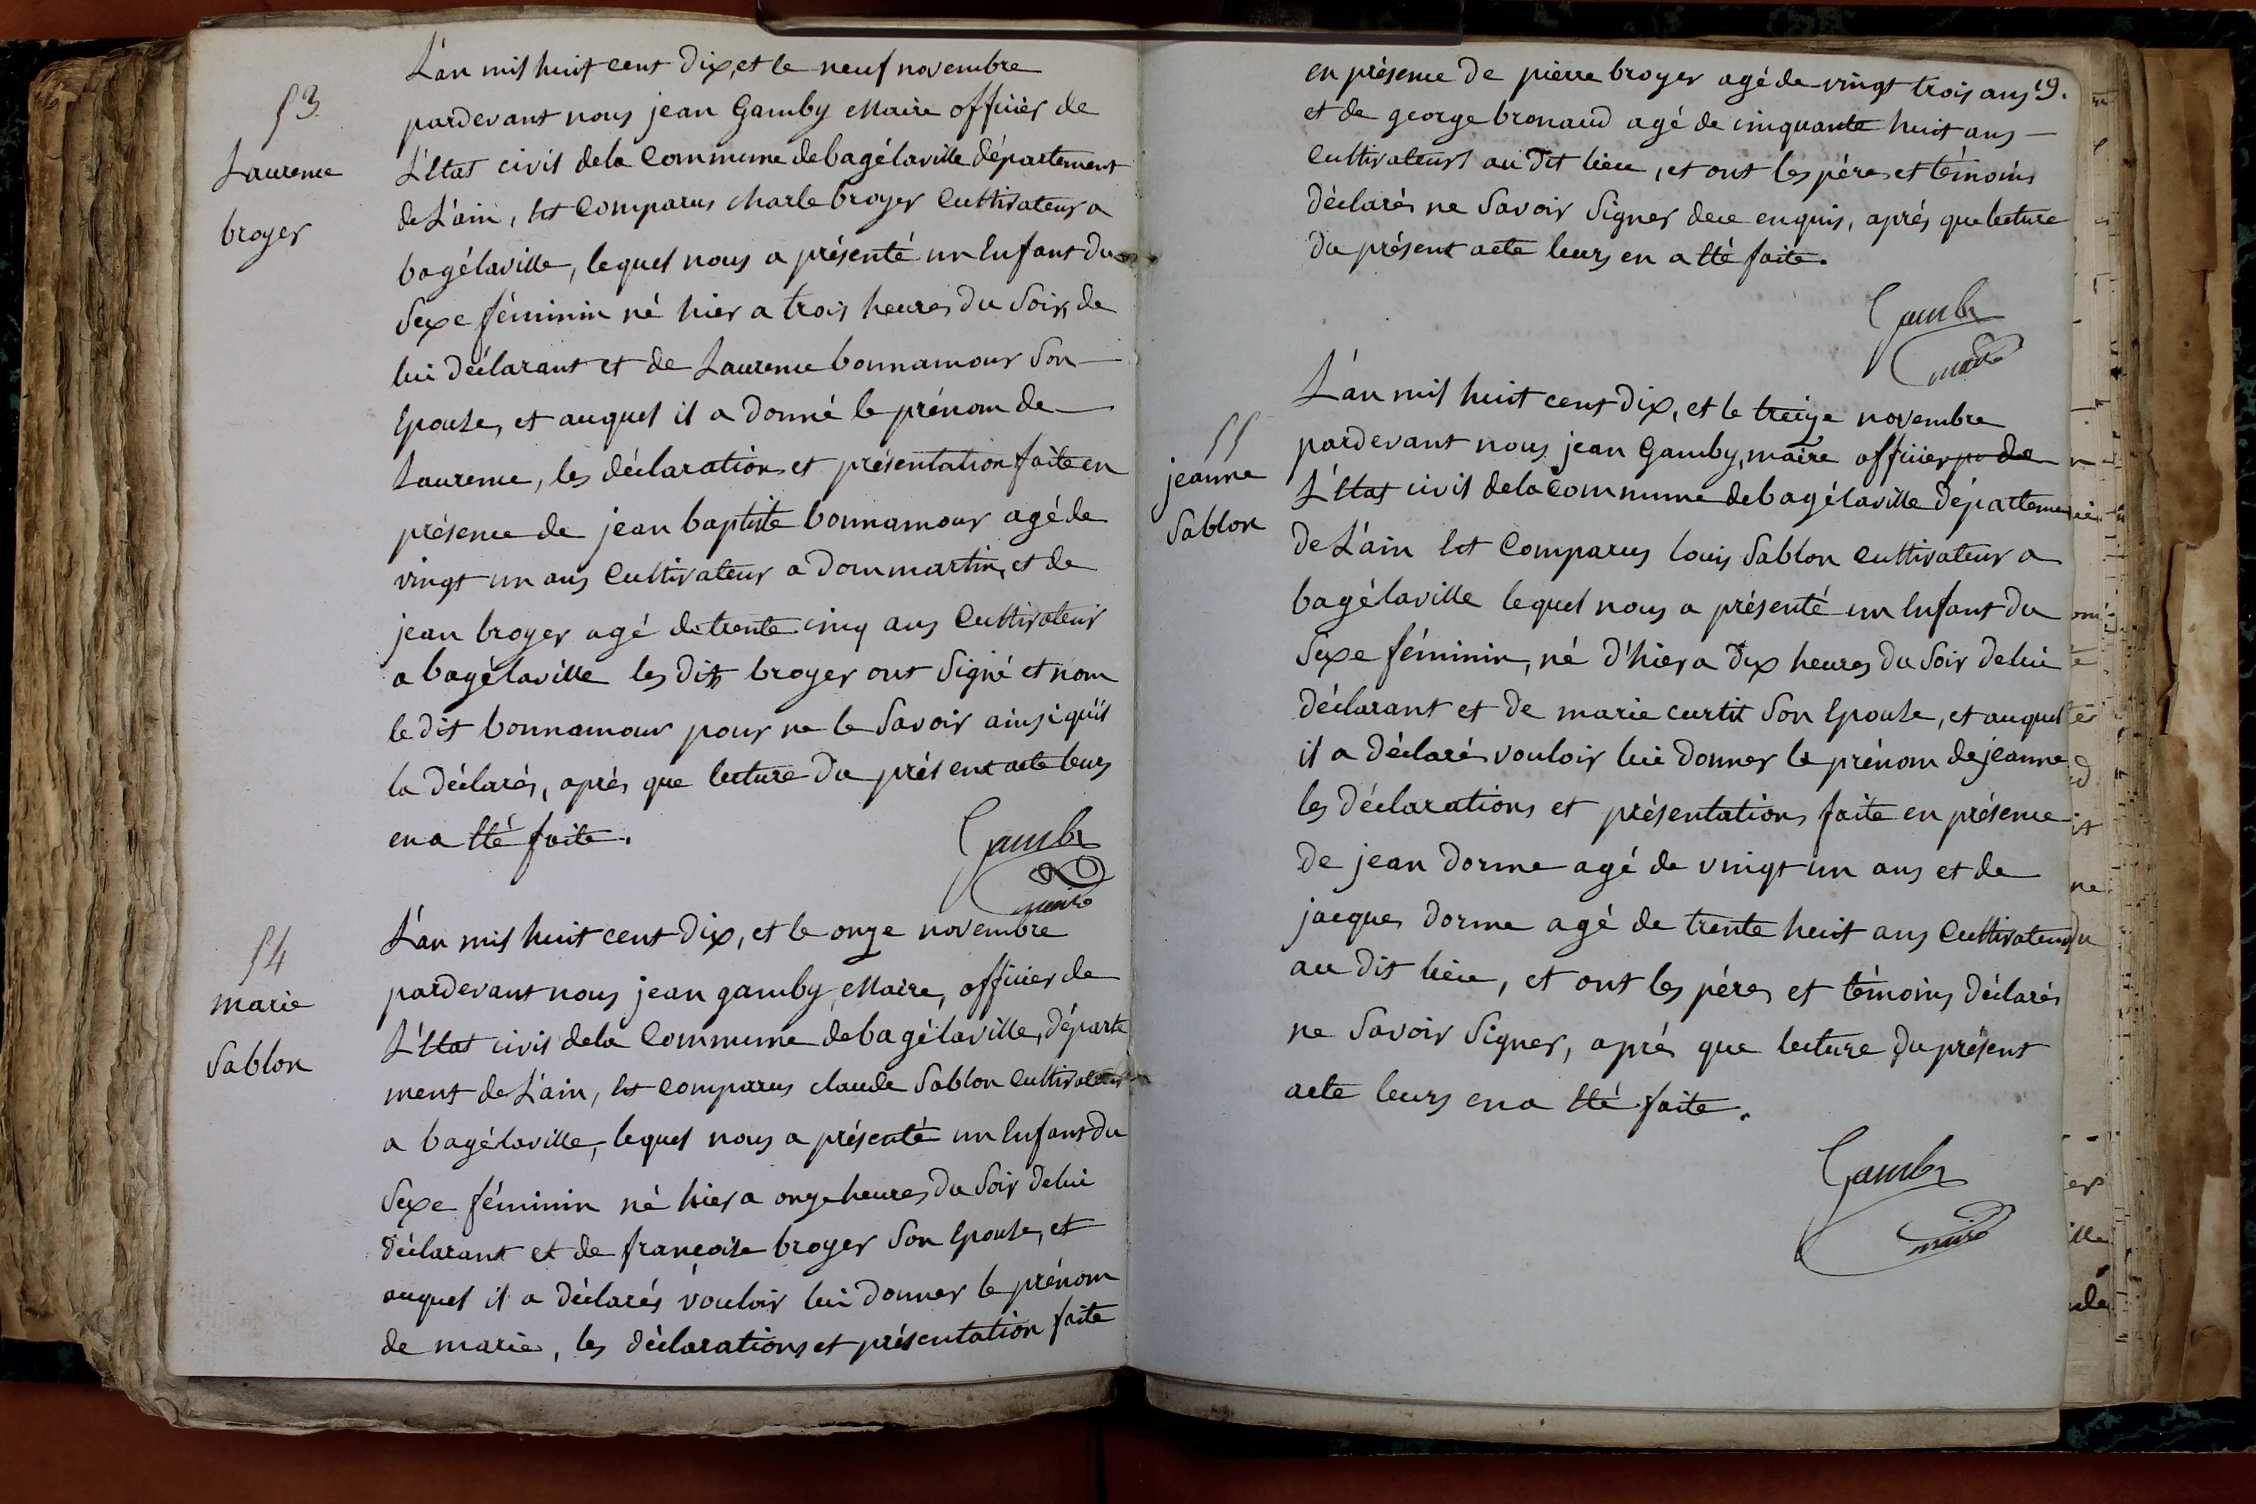 53
Laurence
broyer
L'an mil huit cent dix, et le neuf novembre
pardevant nous jean Gamby Maire officier de
L'Etat civil de la Commune de bagélaville département
de L'ain, Est Comparus charle broyer Cultivateur a
bagélaville, lequel nous a présenté un Enfant du
Sexe féminin né hier a trois heures du Soir, de
lui déclarant et de Laurence bonnamour Son
Epouse, et auquel il a donné le prénom de
Laurence, les déclarations et présentation faite en
présence de jean baptiste bonnamour agé de
vingt un ans Cultivateur a dommartin, et de
jean broyer agé de trente cinq ans Cultivateur
a bagélaville les dits broyer ont Signé et nom
le dit bonnamour pour ne le Savoir ainsi qu'il
la déclarés, aprés que lecture du présent acte leurs
en a Eté faite.
Gamby
maire
54
marie
Sablon
L'an mil huit cent dix, et le onze novembre
pardevant nous jean gamby, Maire, officier de
L'Etat civil de la Commune de bagélaville, départe
ment de L'ain, Est comparus claude Sablon Cultivateur
a bagélaville, lequel nous a présenté un Enfant du
Sexe féminin né hier a onze heures du Soir de lui
déclarant et de françoise broyer Son Epouse, et
auquel il a déclarés vouloir lui donner le prénom
de marie, les déclarations et présentation faite
19.
en présence de pierre broyer agé de vingt trois ans
et de george bronaud agé de cinquante huit ans
Cultivateurs au dit lieu, et ont les péres et témoins
déclarés ne Savoir Signer de ce enquis, aprés que lecture
du présent acte leurs en a Eté faite.
Gamby
maire
55
jeanne
Sablon
L'an mil huit cent dix, et le treize novembre
pardevant nous jean Gamby, maire officier de
L'Etat civil de la Commune de bagélaville département
de L'ain Est Comparus louis Sablon Cultivateur a
bagélaville lequel nous a présenté un Enfant du
Sexe féminin, né d'hier a dix heures du Soir de lui
déclarant et de marie curtit Son Epouse, et auquel
il a déclarés vouloir lui donner le prénom de jeanne
les déclarations et présentation faite en présence
de jean dorme agé de vingt un ans et de
jacques dorme agé de trente huit ans Cultivateurs
au dit lieu, et ont les péres et témoins déclarés
ne Savoir Signer, aprés que lecture du présent
acte leurs en a Eté faite.
Gamby
maire